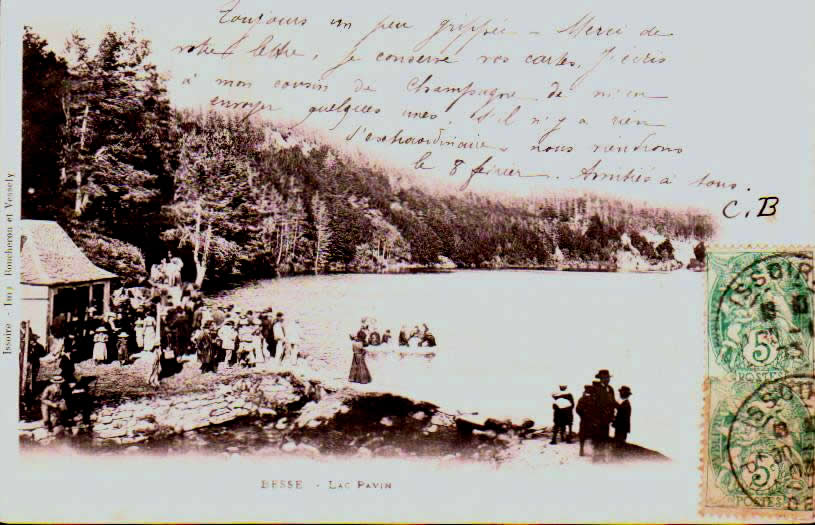 Toujours un peu grippée - Merci de
votre lettre, je conserve vos cartes, J'écris
à mon cousin de Champagne de m'en
envoyer quelques unes, s'il n'y a rien
d'extraordinaire, nous viendrons
le 8 février. Amitiés à tous.
C.B
Issoire - Imp Boucheron et Vessely
ISSOIRE
5c
POSTES
ISSOIRE
5c
BESSE - LAC PAVIN
POSTES